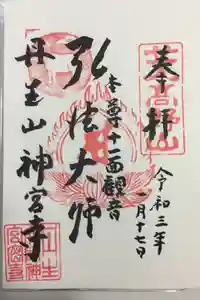 奉拝
令和三年
一月十七日
本尊十一面觀音
弘法大師
丹生山神宮寺